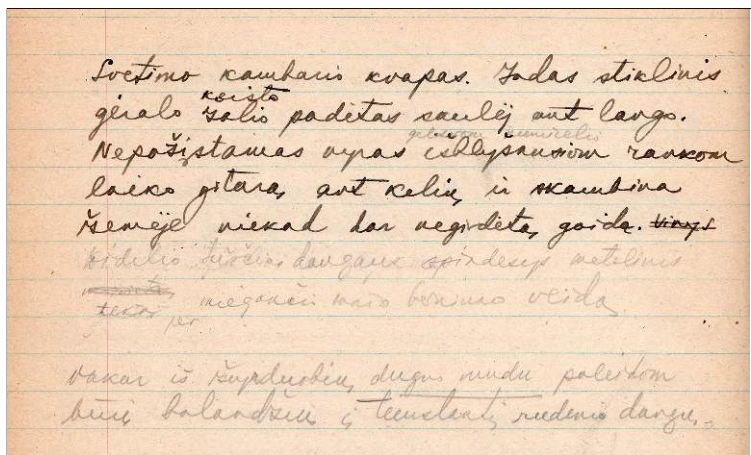 Svetimo kambario kvapas. Indas stiklinis
keisto
gėralo žalio padėtas saulėj ant lango.
Nepažįstamas vyras išblyškusiom rankom
laiko gitarą ant kelių ir skambina
žemėje niekad dar negirdėtą gaidą.
Didelio tuščio dangaus spindesys metalinis
tekas per miegančio mano bėrimo veidą
Vakar iš žvyrduobių dugno mudu paleidom
būrį balandžių į temstantį rudenio dangų.